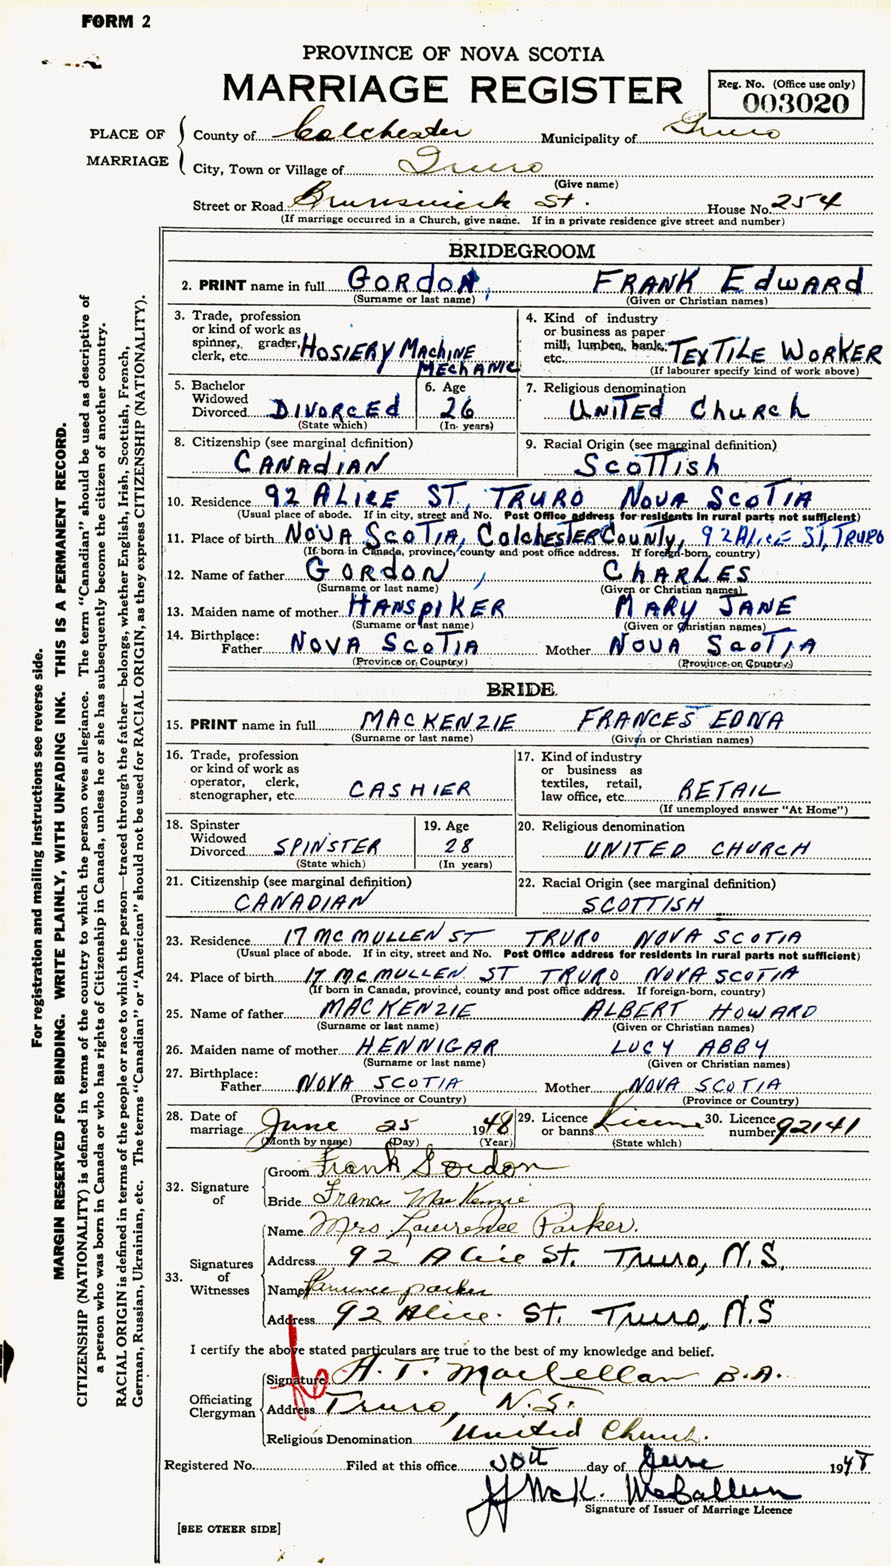 FORM 2
PROVINCE OF NOVA SCOTIA
MARRIAGE REGISTER
Reg. No. (Office use only)
003020
PLACE OF MARRIAGE
County of Colchester Municipality of Truro
City, Town or Village of Truro
(Give name)
Street or Road Brunswick St. House No. 254
(If marriage occurred in a Church, give name. If in a private residence give street and number)
BRIDEGROOM
2. PRINT name in full GORDON, FRANK EDWARD
(Surname or last name) (Given or Christian names)
3. Trade, profession or kind of work as spinner, grader, clerk, etc. HOSIERY MACHINE MECHANIC
4. Kind of industry or business as paper mill, lumber, bank, etc. TEXTILE WORKER
(If labourer specify kind of work above)
5. Bachelor Widowed Divorced DIVORCED
(State which)
6. Age 26
(In years)
7. Religious denomination
UNITED CHURCH
8. Citizenship (see marginal definition)
CANADIAN
9. Racial Origin (see marginal definition)
SCOTTISH
10. Residence 92 ALICE ST, TRURO NOVA SCOTIA
(Usual place of abode. If in city, street and No. Post Office address for residents in rural parts not sufficient)
11. Place of birth NOVA SCOTIA, COLCHESTER COUNTY, 92 ALICE ST, TRURO
(If born in Canada, province, county and post office address. If foreign-born, country)
12. Name of father GORDON, CHARLES
(Surname or last name) (Given or Christian names)
13. Maiden name of mother HANSPIKER MARY JANE
(Surname or last name) (Given or Christian names)
14. Birthplace:
Father NOVA SCOTIA Mother NOVA SCOTIA
(Province or Country) (Province or Country)
BRIDE
15. PRINT name in full MACKENZIE FRANCES EDNA
(Surname or last name) (Given or Christian names)
16. Trade, profession or kind of work as operator, clerk, stenographer, etc. CASHIER
17. Kind of industry or business as textiles, retail, law office, etc. RETAIL
(If unemployed answer "At Home")
18. Spinster Widowed Divorced SPINSTER
(State which)
19. Age 28
(In years)
20. Religious denomination
UNITED CHURCH
21. Citizenship (see marginal definition)
CANADIAN
22. Racial Origin (see marginal definition)
SCOTTISH
23. Residence 17 MCMULLEN ST TRURO NOVA SCOTIA
(Usual place of abode. If in city, street and No. Post Office address for residents in rural parts not sufficient)
24. Place of birth 17 MCMULLEN ST TRURO NOVA SCOTIA
(If born in Canada, province, county and post office address. If foreign-born, country)
25. Name of father MACKENZIE ALBERT HOWARD
(Surname or last name) (Given or Christian names)
26. Maiden name of mother HENNIGAR LUCY ABBY
(Surname or last name) (Given or Christian names)
27. Birthplace:
Father NOVA SCOTIA Mother NOVA SCOTIA
(Province or Country) (Province or Country)
28. Date of marriage June 25 1948
(Month by name) (Day) (Year)
29. Licence or banns License
(State which)
30. Licence number 92141
32. Signature of
Groom Frank Gordon
Bride Frances MacKenzie
33. Signatures of Witnesses
Name Mrs Lawrence Parker.
Address 92 Alice St. Truro, N.S.
Name Lawrence parker
Address 92 Alice St. Truro, N.S
I certify the above stated particulars are true to the best of my knowledge and belief.
Officiating Clergyman
Signature A. T. MacLellan B.A.
Address Truro, N.S.
Religious Denomination United Church.
Registered No. Filed at this office 30th day of June 1948
J McK. McCallum
Signature of Issuer of Marriage Licence
[SEE OTHER SIDE]
For registration and mailing instructions see reverse side.
MARGIN RESERVED FOR BINDING. WRITE PLAINLY, WITH UNFADING INK. THIS IS A PERMANENT RECORD.
CITIZENSHIP (NATIONALITY) is defined in terms of the country to which the person owes allegiance. The term "Canadian" should be used as descriptive of
a person who was born in Canada or who has rights of Citizenship in Canada, unless he or she has subsequently become the citizen of another country.
RACIAL ORIGIN is defined in terms of the people or race to which the person—traced through the father—belongs, whether English, Irish, Scottish, French,
German, Russian, Ukrainian, etc. The terms "Canadian" or "American" should not be used for RACIAL ORIGIN, as they express CITIZENSHIP (NATIONALITY).